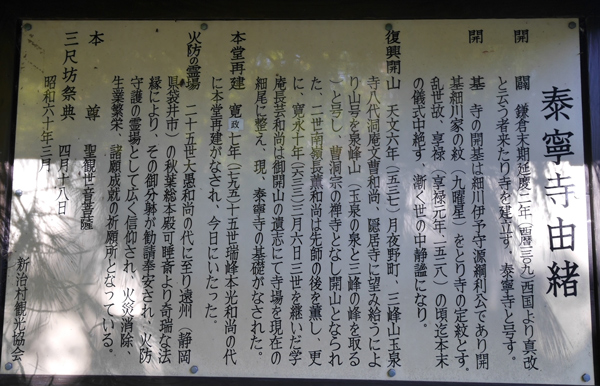 泰寧寺由緒
開闢 鎌倉末期延慶二年（西暦一三〇九）西国より真改
と云う者来たり寺を建立す。泰寧寺と号す。
開基 寺の開基は細川伊予守源綱利公であり開
基細川家の紋（九曜星）をとり寺の定紋とす。
乱世故、享禄（享禄元年、一五二八）の頃迄本末
の儀式中絶す、漸く世の中静謐になり。
復興開山 天文六年（一五三七）月夜野町、三峰山玉泉
寺八代洞庵文曹和尚、隠居寺に望み給うによ
り山号を泉峰山（玉泉の泉と三峰の峰を取る
）と号し、曹洞宗の禅寺となし開山となられ
た、二世南嶺長薫和尚は先師の後を薫し、更
に、寛永十年（一六三三）二月六日三世を継いだ学
庵長芸和尚は御開山の遺志にて寺場を現在の
細尾に整え、現、泰寧寺の基礎がなされた。
本堂再建 寛政七年（一七九五）十五世瑞峰本光和尚の代
に本堂再建がなされ、今日にいたった。
火防の霊場 二十五世大愚和尚の代に至り遠州（静岡
県袋井市）の秋葉総本殿可睡斎より奇瑞な法
縁により、その御分躰が勧請奉安され、火防
守護の霊場として広く信仰され、火災消除、
生業繁栄、諸願成就の祈願所となっている。
本尊 聖観世音菩薩
三尺坊祭典 四月十八日
昭和六十年三月
新治村観光協会